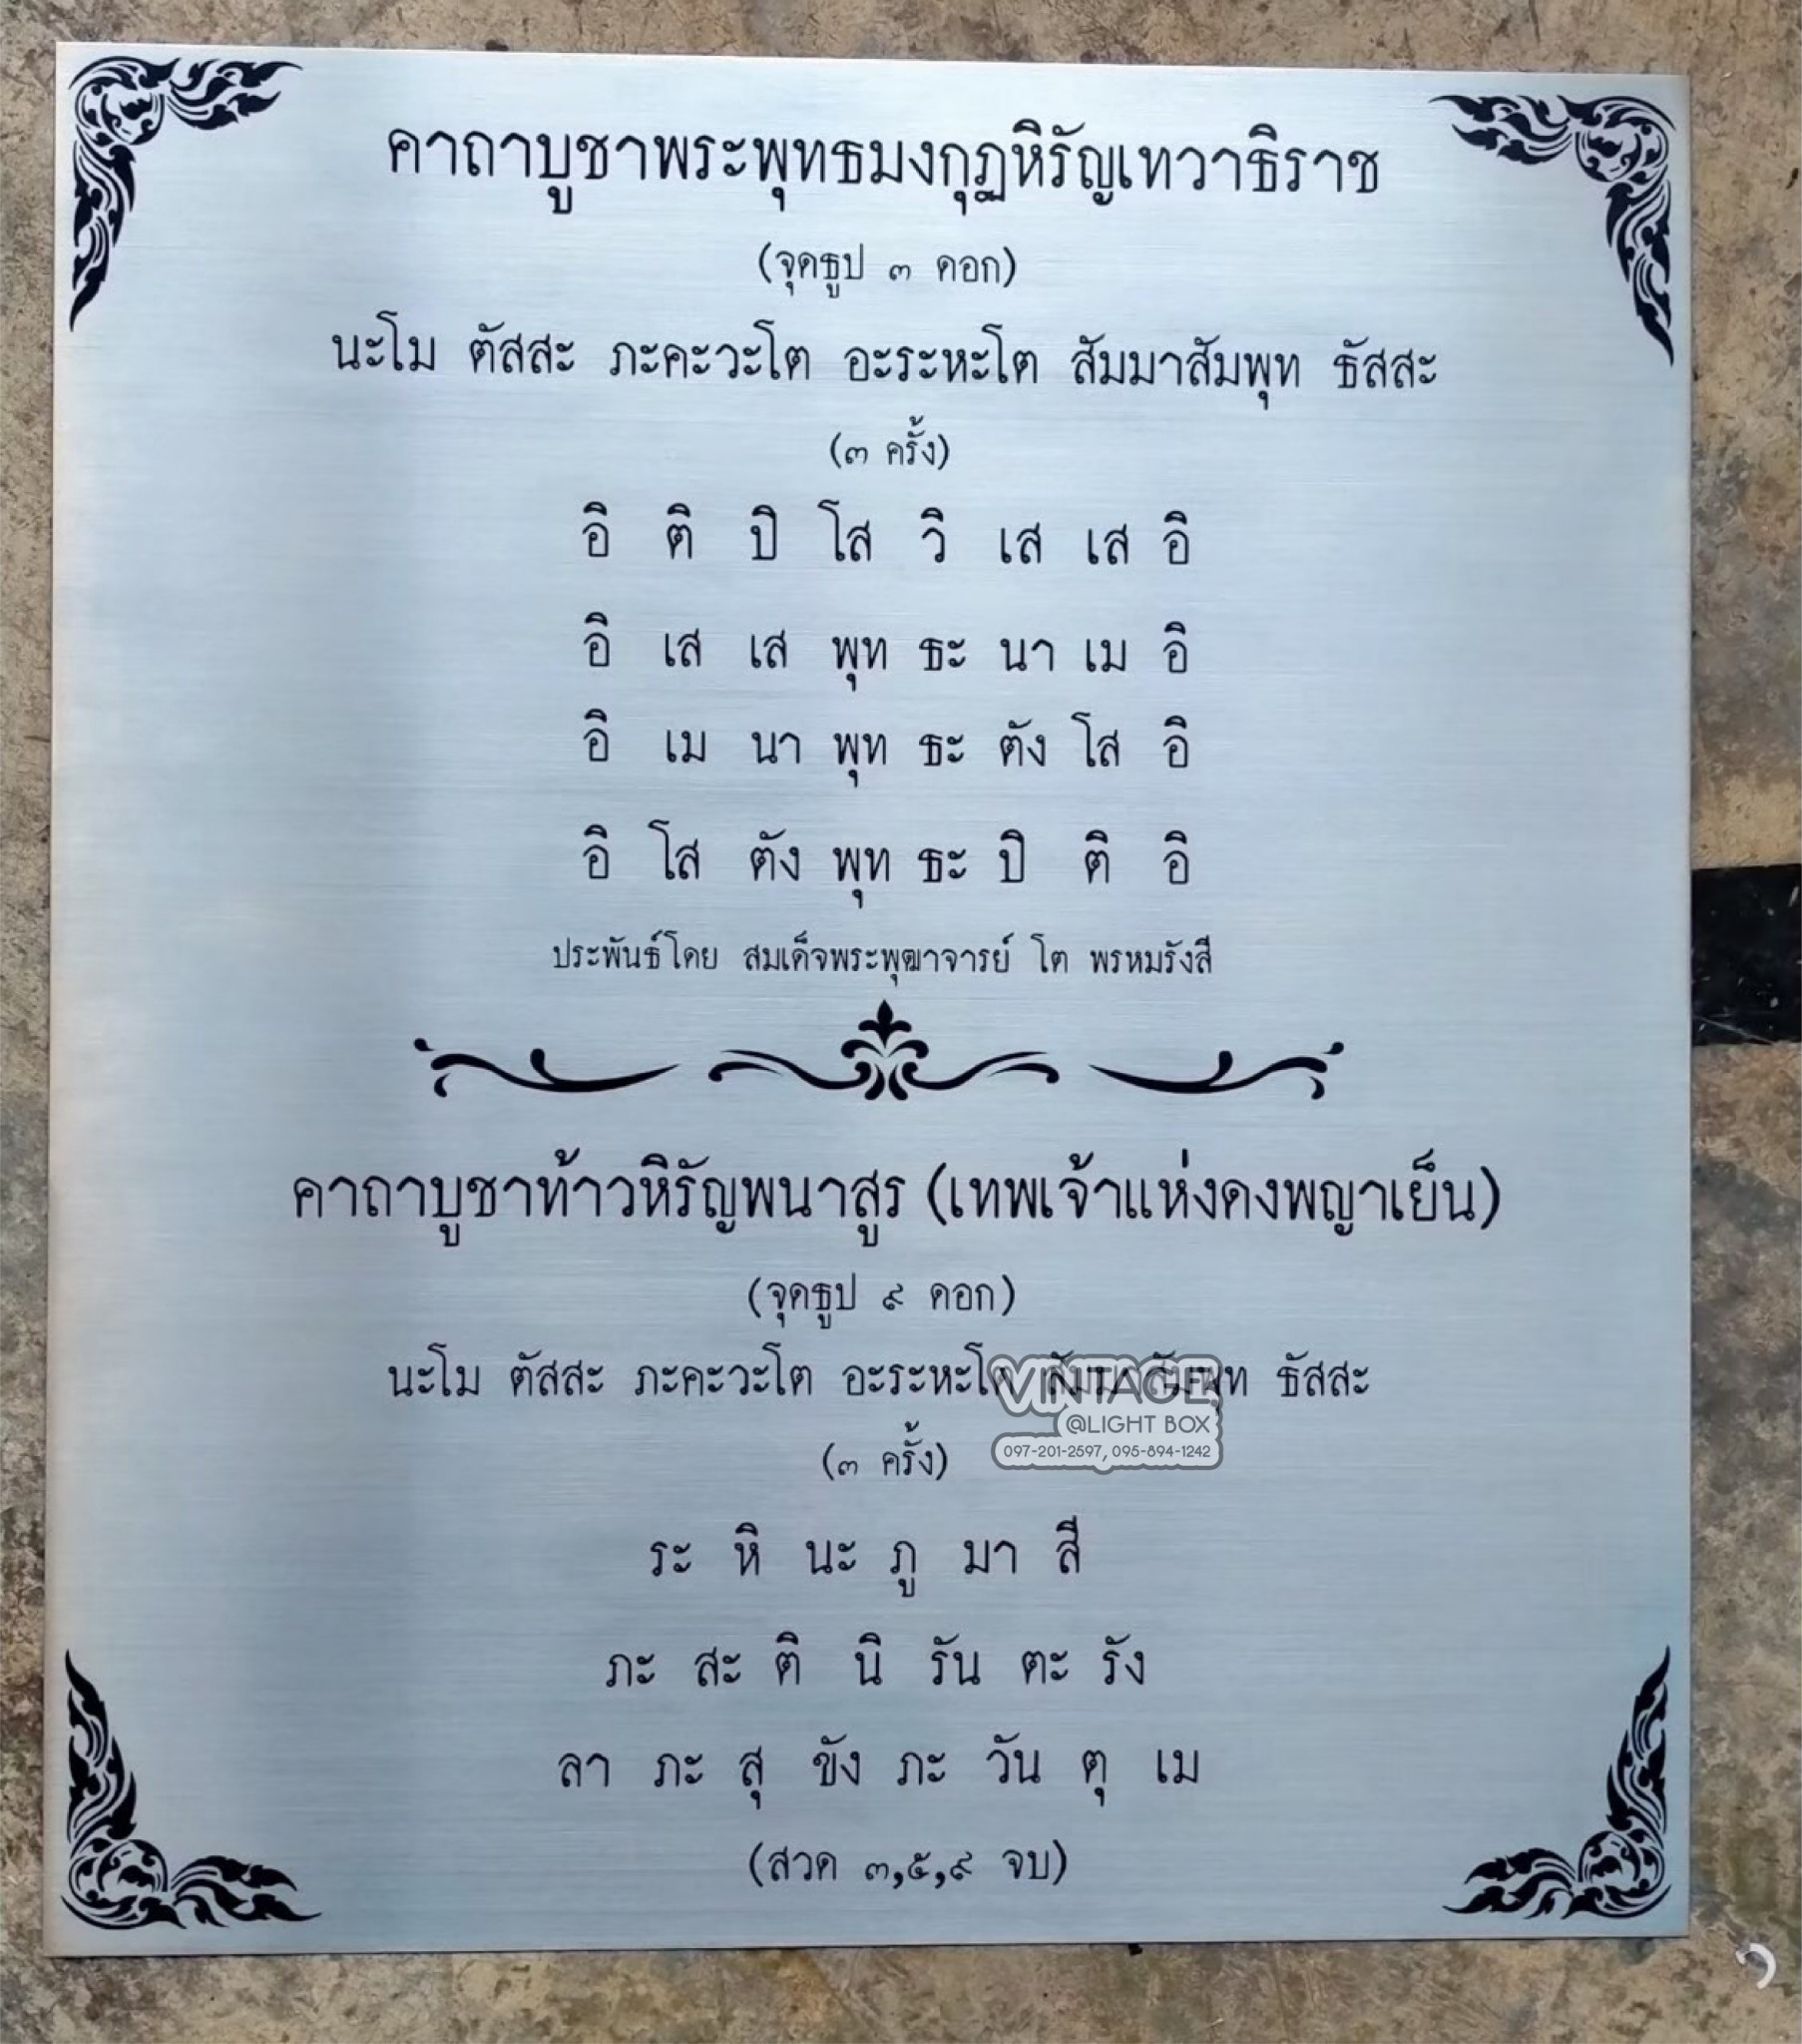 คาถาบูชาพระพุทธมงกุฏหิรัญเทวาธิราช
(จุดธูป ๓ ดอก)
นะโม ตัสสะ ภะคะวะโต อะระหะโต สัมมาสัมพุท ธัสสะ
(๓ ครั้ง)
อิ ติ ปิ โส วิ เส เส อิ
อิ เส เส พุท ธะ นา เม อิ
อิ เม นา พุท ธะ ตัง โส อิ
อิ โส ตัง พุท ธะ ปิ ติ อิ
ประพันธ์โดย สมเด็จพระพุฒาจารย์ โต พรหมรังสี
คาถาบูชาท้าวหิรัญพนาสูร (เทพเจ้าแห่งดงพญาเย็น)
(จุดธูป ๙ ดอก)
นะโม ตัสสะ ภะคะวะโต อะระหะโต สัมมาสัมพุท ธัสสะ
VINTAGE
@LIGHT BOX
097-201-2597, 095-894-1242
(๓ ครั้ง)
ระ หิ นะ ภู มา สี
ภะ สะ ติ นิ รัน ตะ รัง
ลา ภะ สุ ขัง ภะ วัน ตุ เม
(สวด ๓,๕,๙ จบ)